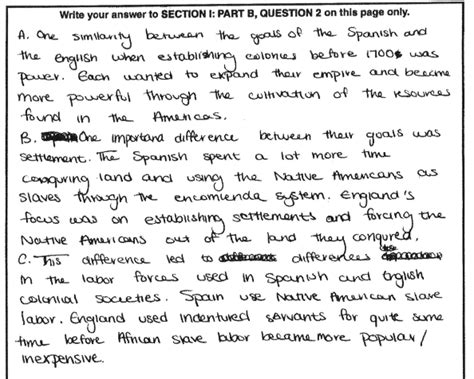 Write your answer to SECTION I: PART B, QUESTION 2 on this page only.
A. One similarity between the goals of the Spanish and
the english when establishing colonies before 1700s was
power. Each wanted to expand their empire and become
more powerful through the cultivation of the resources
found in the Americas.
B. One importand difference between their goals was
settlement. The Spanish spent a lot more time
conquring land and using the Native Americans as
slaves through the encomienda system. England's
focus was on establishing settlements and forcing the
Native Americans out of the land they conqured.
C. This difference led to differences
in the labor forces used in Spanish and English
colonial societies. Spain use Native American slave
labor. England used indentured servants for quite some
time before African slave labor became more popular/
inexpensive.